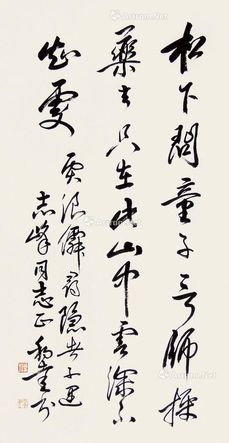 松下問童子言師採
藥去只在此山中雲深不
知處
賈浪僊尋隱者不遇
志峰同志正